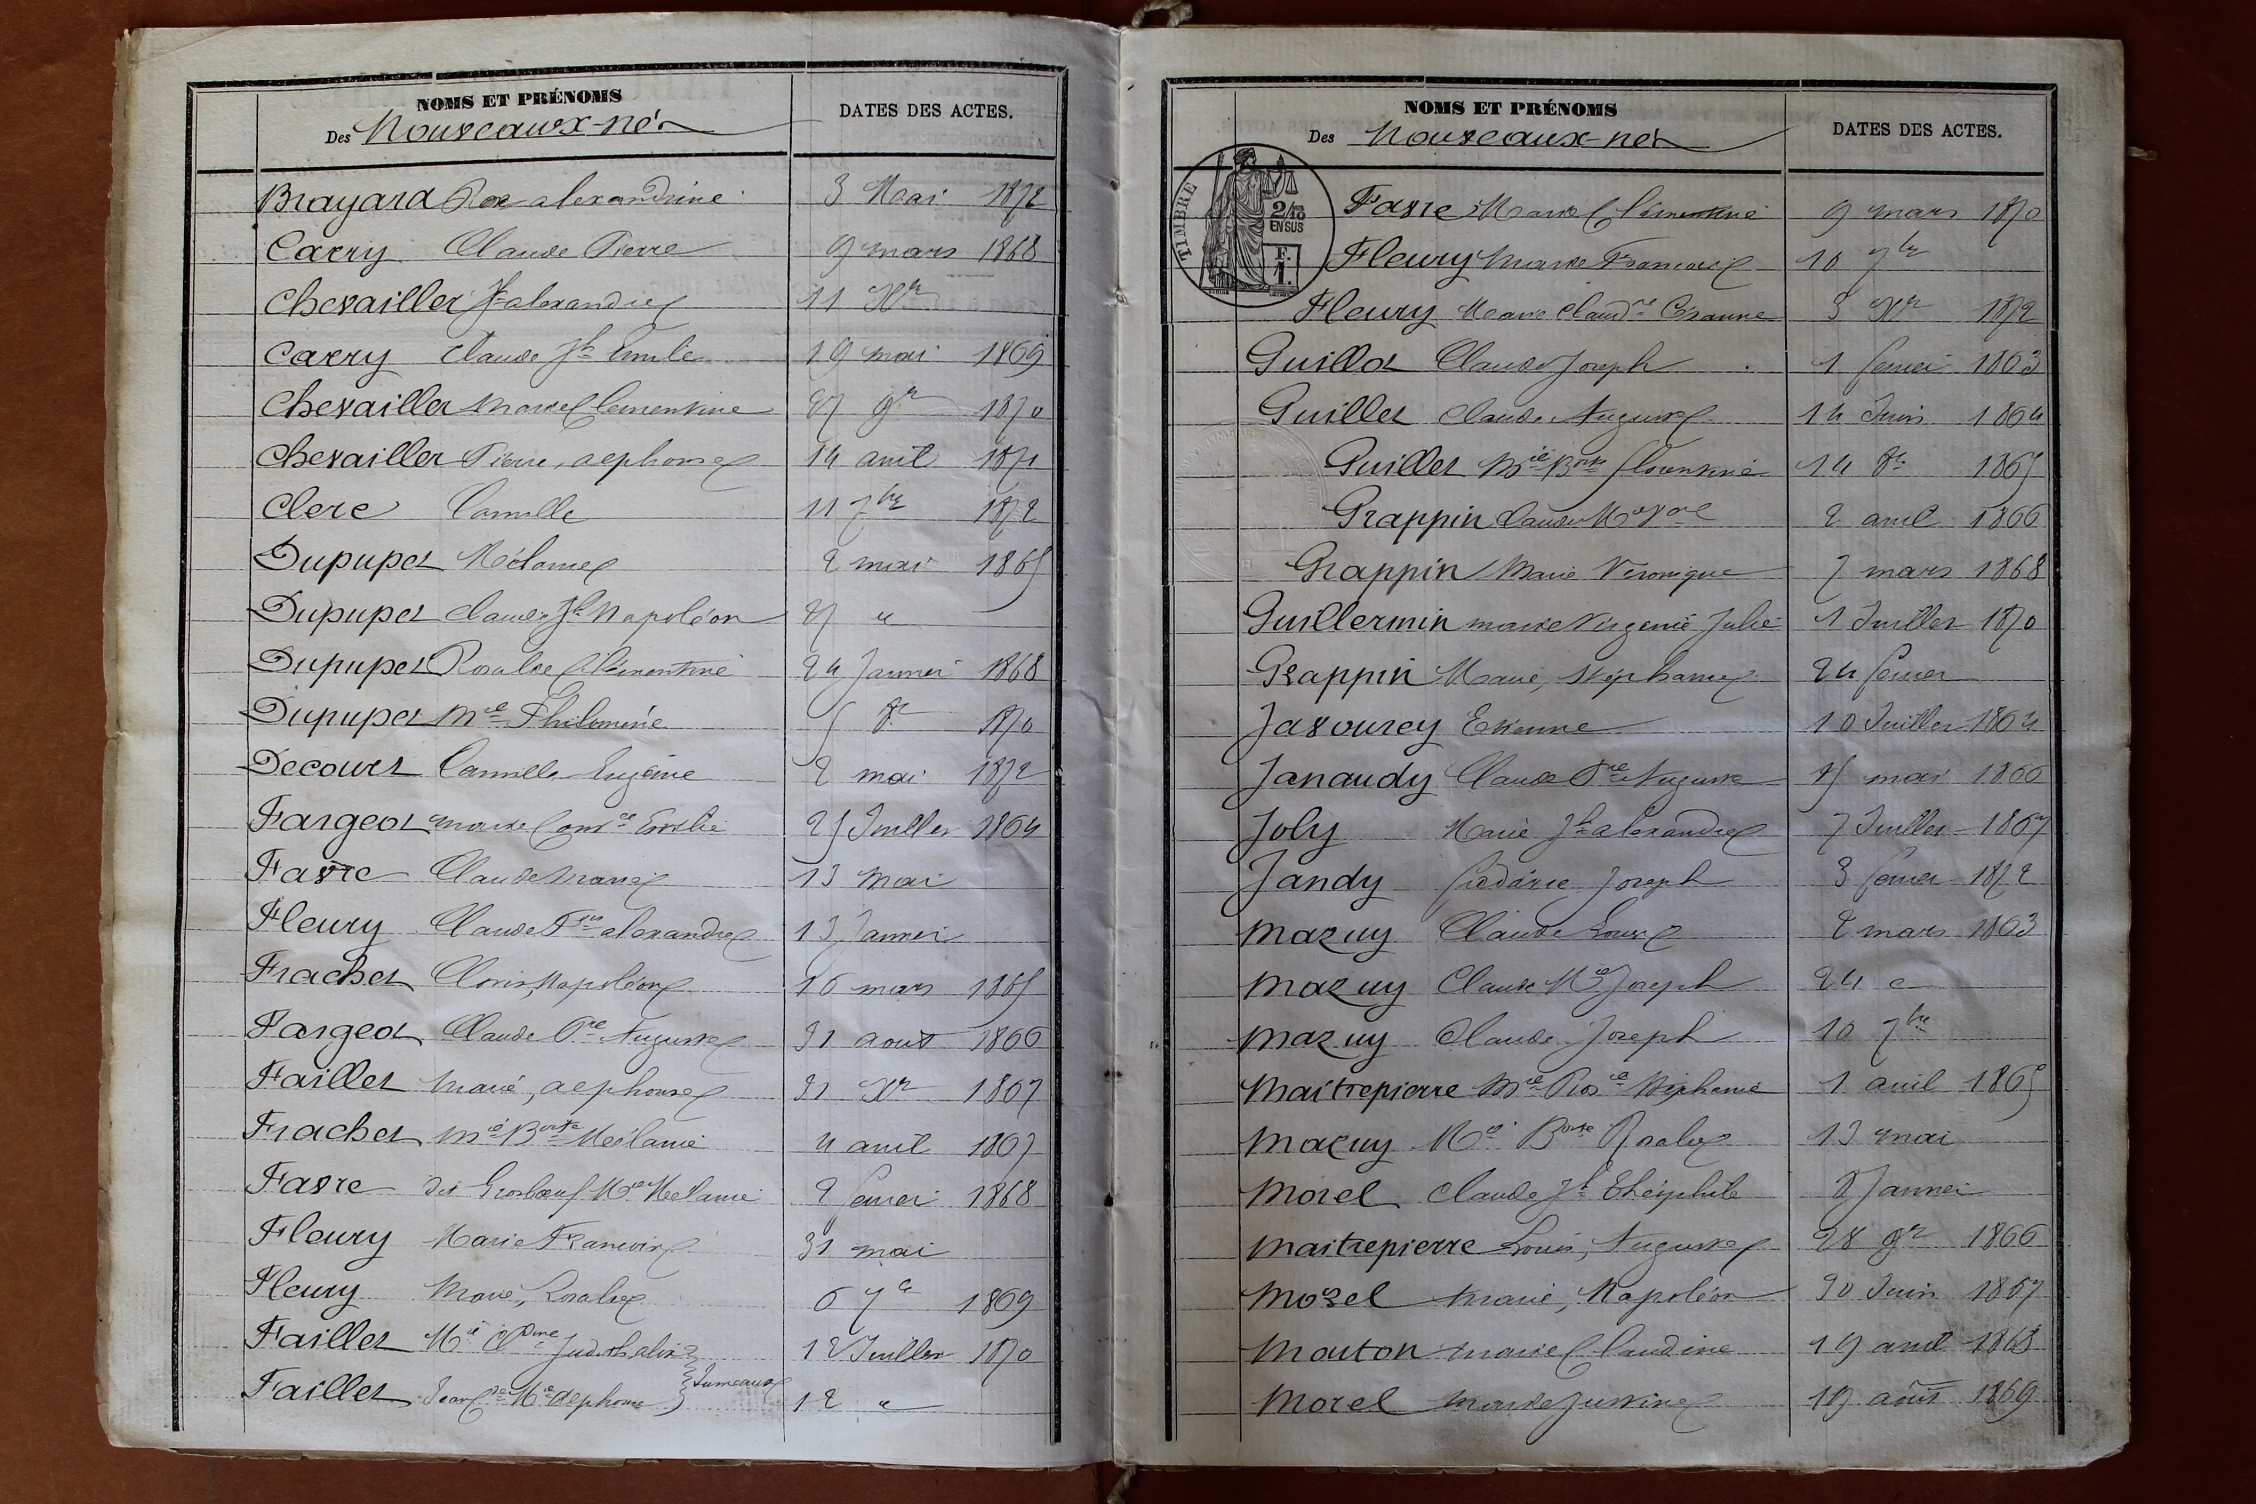 NOMS ET PRÉNOMS
Des Nouveaux-nés
DATES DES ACTES.
Brayard Rose alexandrine 3 Mai 1872
Carry Claude Pierre 9 mars 1868
Chevaillier Jh alexandre 11 Xbre
Carry Claude Jh Emile 19 mai 1869
Chevaillier Marie Clementine 27 9bre 1870
Chevaillier Pierre, alphonse 14 avril 1871
Clerc Camille 11 7bre 1872
Dupupet Mélanie 2 mai 1865
Dupupet Claude Jh Napoléon 27 "
Dupupet Rosalie Clémentine 24 Janvier 1868
Dupupet Mie Philomène 5 8bre 1870
Decourt Camille Eugène 2 mai 1872
Fargeot marie Emélie 25 Juillet 1864
Favre Claude Marie 13 Mai
Fleury Claude Fois alexandre 13 Janvier
Frachet Clovis, Napoléon 16 mars 1865
Fargeot Claude Pre Auguste 31 aout 1866
Faillet Marie, alphonse 31 Xbre 1867
Frachet Mie Bvte Mélanie 4 avril 1867
Favre dit Grosboeuf Mie Mélanie 2 fevrier 1868
Fleury Marie Francoise 31 mai
Fleury Marie, Rosalie 6 7bre 1869
Faillet Mie Cdine Judith 12 Juillet 1870
Faillet Mie alphonse } Jumeaux 12 "
NOMS ET PRÉNOMS
Des Nouveaux-nés
DATES DES ACTES.
TIMBRE
2/10
EN SUS
F.
1.
Favre Marie Clémentine 9 mars 1870
Fleury Marie Francois 10 7bre
Fleury Marie Claudne Cesarine 3 Xbre 1872
Guillot Claude Joseph 1 fevrier 1863
Guillet Claude Auguste 14 Juin 1864
Guillet Mie Bvte florentine 14 8bre 1865
Grappin Claude 2 avril 1866
Grappin Marie Veronique 7 mars 1868
Guillermin marie Virgenie Julie 1 Juillet 1870
Grappin Marie, Stéphanie 24 fevrier
Javourey Etienne 10 Juillet 1864
Janaudy Claude Pre Auguste 15 mai 1866
Joly Marie Jh alexandre 7 Juillet 1867
Jandy fréderic Joseph 3 fevrier 1872
Mazuy Claude Louis 2 mars 1863
Mazuy Claude Mie Joseph 24 "
Mazuy Claude Joseph 10 7bre
Maitrepierre Mie Rosie Stéphanie 1 avril 1865
Mazuy Mie Bvte Rosalie 13 mai
Morel Claude Jh Théophile 8 Janvier
Maitrepierre Louis, Auguste 28 9bre 1866
Morel Marie, Napoléon 30 Juin 1867
Mouton Marie Claudine 19 avril 1868
Morel Marie Justine 19 août 1869